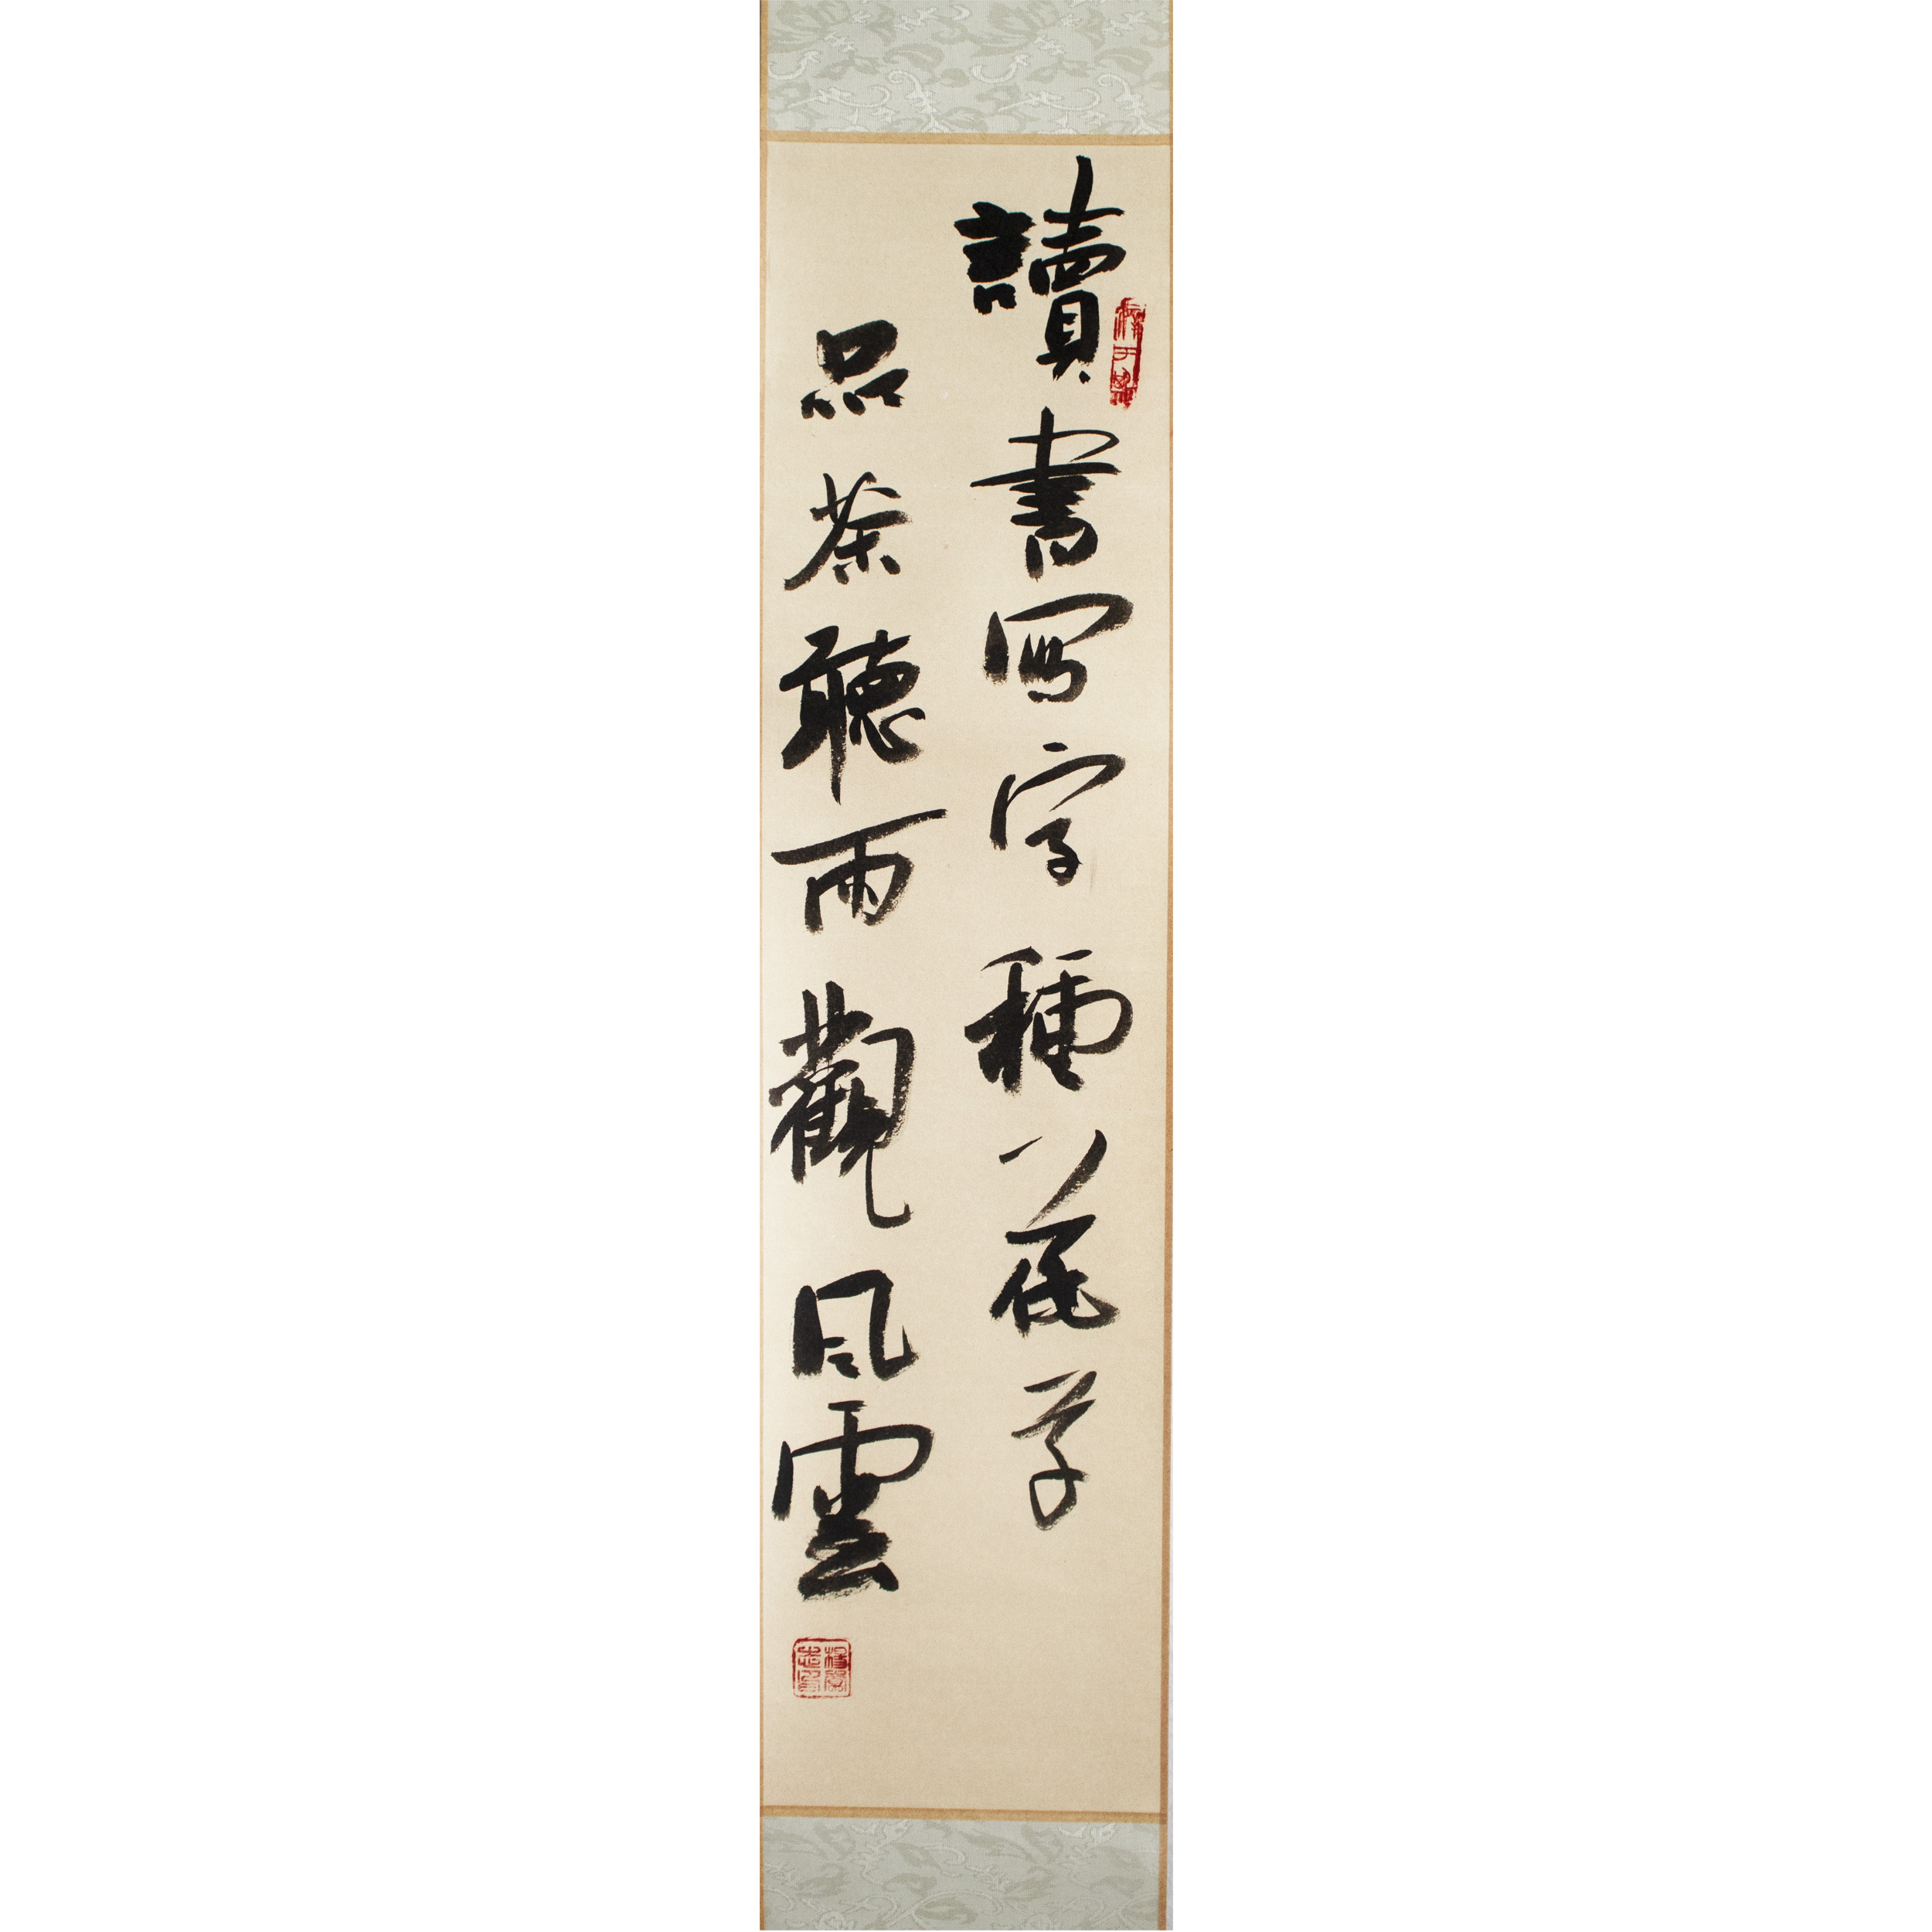 讀書写字種花草
品茶聽雨觀風雲